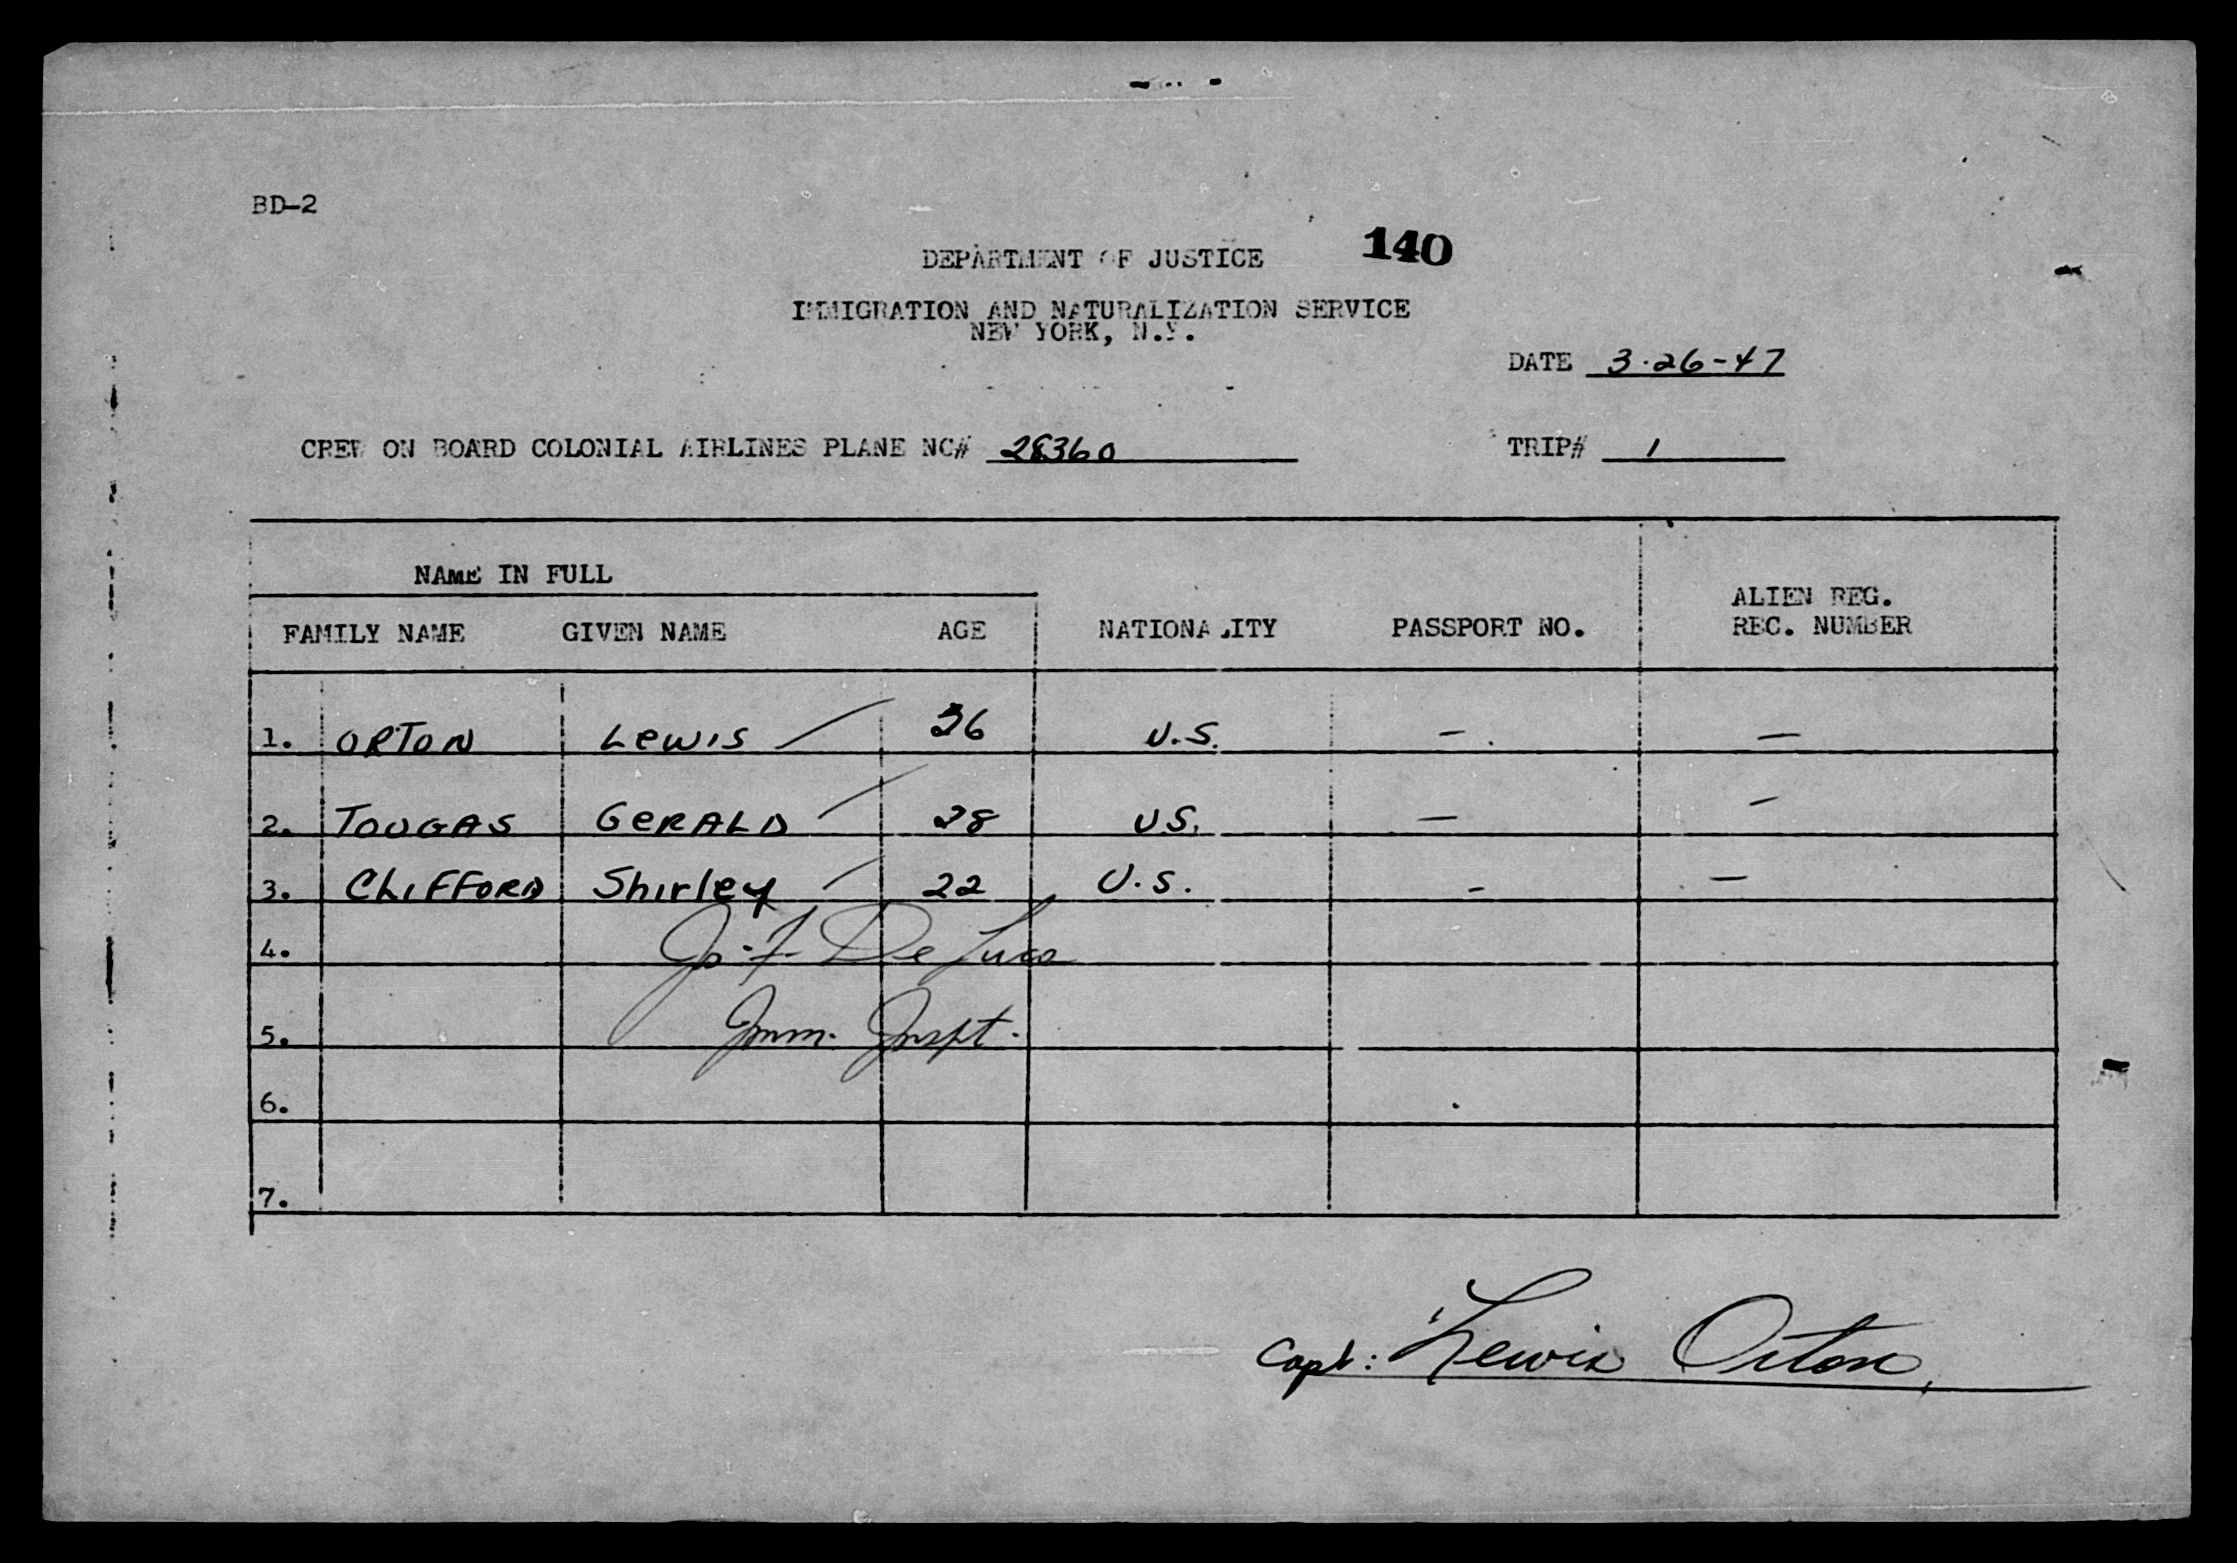 BD-2
DEPARTMENT OF JUSTICE 140
IMMIGRATION AND NATURALIZATION SERVICE
NEW YORK, N.Y.
DATE 3-26-47
CREW ON BOARD COLONIAL AIRLINES PLANE NC# 28360 TRIP# 1
NAME IN FULL
FAMILY NAME GIVEN NAME AGE NATIONALITY PASSPORT NO. ALIEN REG. REC. NUMBER
1. ORTON LEWIS 36 U.S. - -
2. TOUGAS GERALD 28 U.S. - -
3. CLIFFORD Shirley 22 U.S. - -
4. J. F. De Luca
5. Imm. Inspt.
6.
7.
Capt: Lewis Orton